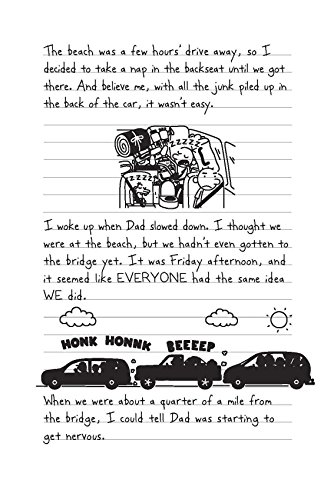 The beach was a few hours' drive away, so I
decided to take a nap in the backseat until we got
there. And believe me, with all the junk piled up in
the back of the car, it wasn't easy.
ZZZZ
ZZZZ
I woke up when Dad slowed down. I thought we
were at the beach, but we hadn't even gotten to
the bridge yet. It was Friday afternoon, and
it seemed like EVERYONE had the same idea
WE did.
HONK HONNK BEEEEP
When we were about a quarter of a mile from
the bridge, I could tell Dad was starting to
get nervous.